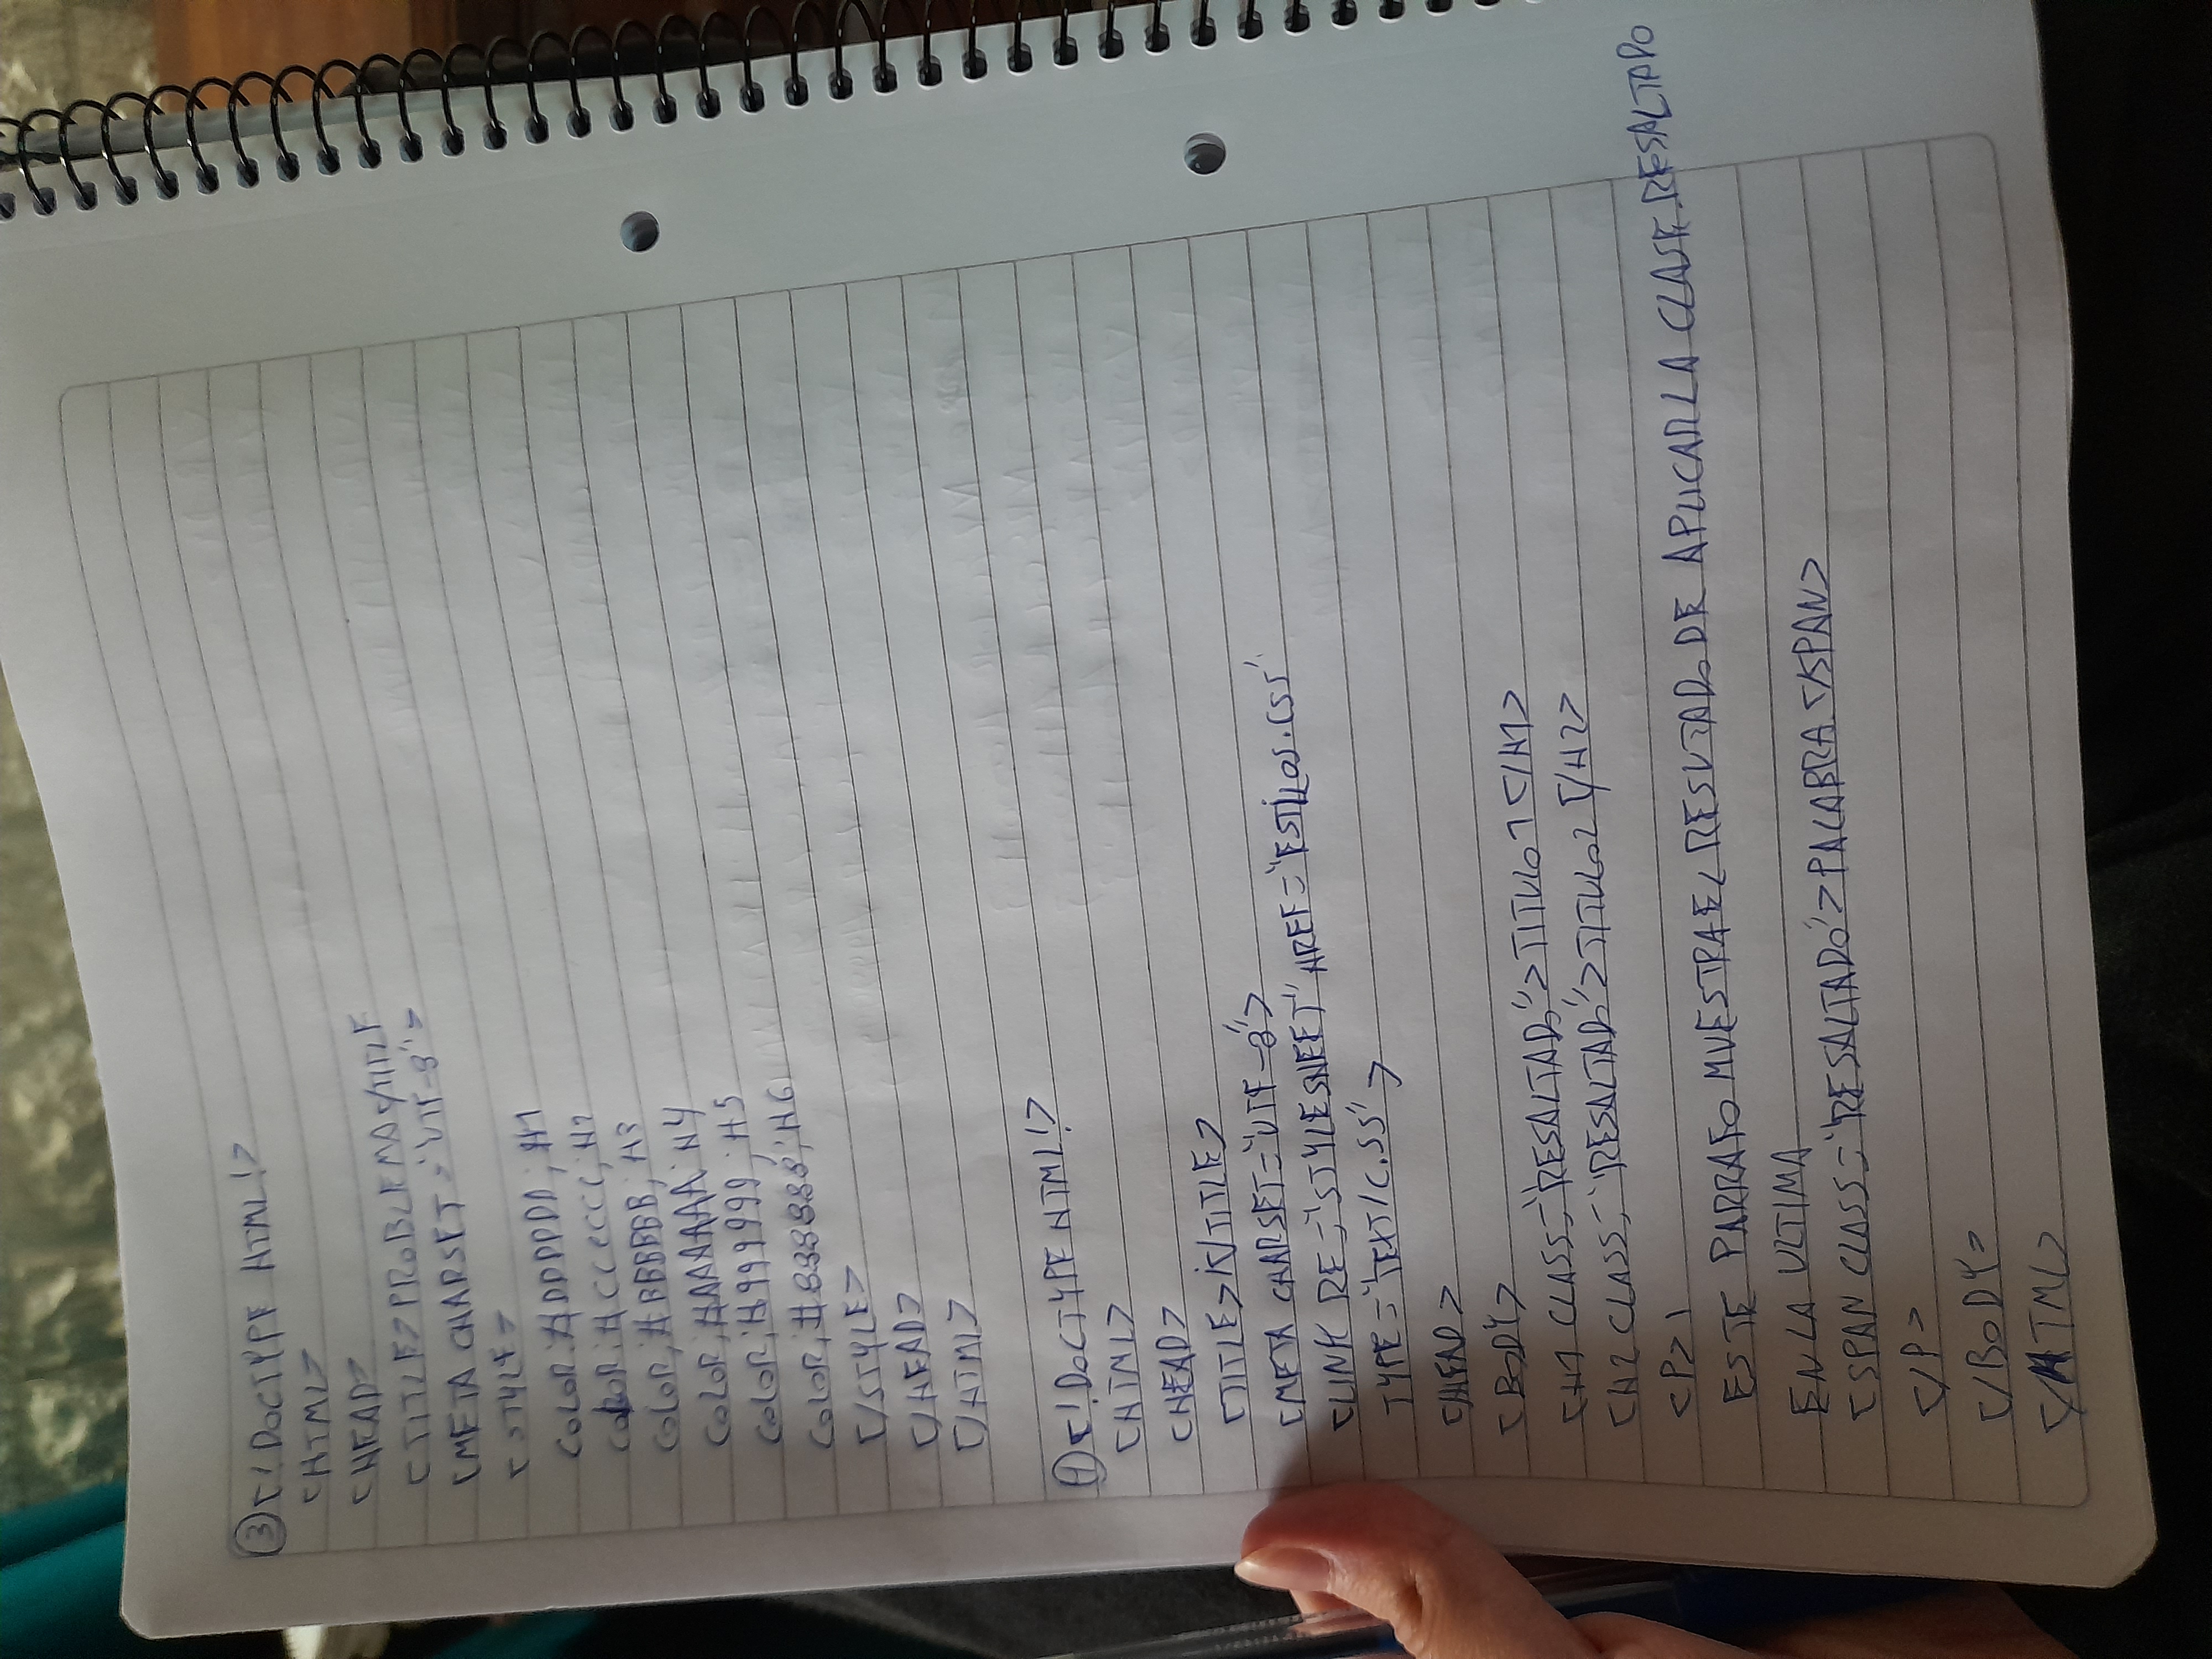 ③<!DOCTYPE HTML!>
<HTML>
<HEAD>
<TITLE>PROBLEMA</TITLE
<META CHARSET="UTF-8">
<STYLE>
COLOR:#DDDDDD; H1
COLOR:#CCCCCC; H2
COLOR,#BBBBBB; H3
COLOR,#AAAAAA; H4
COLOR;#999999; H5
COLOR,#888888; H6
</STYLE>
</HEAD>
</HTML>
④<!DOCTYPE HTML!>
<HTML>
<HEAD>
<TITLE></TITLE>
<META CHARSET="UTF-8">
<LINK RE="STYLESHEET" HREF="ESTILOS.CSS"
TYPE="TEXT/C.SS">
</HEAD>
<BODY>
<H1 CLASS="RESALTADO">TITULO 1</H1>
<H2 CLASS="RESALTADO">TITULO2</H2>
<P>1
ESTE PARRAFO MUESTRA EL RESUTADO DE APLICAR LA CLASE.RESALTADO
EN LA ULTIMA
<SPAN CLASS="RESALTADO">PALABRA.</SPAN>
</P>
</BODY>
</HTML>